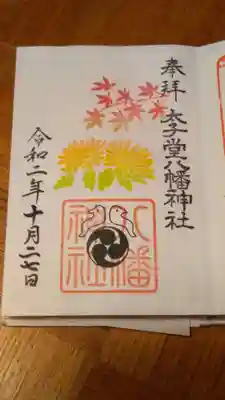 奉拝
太子堂八幡神社
令和二年十月二七日
八幡
神社